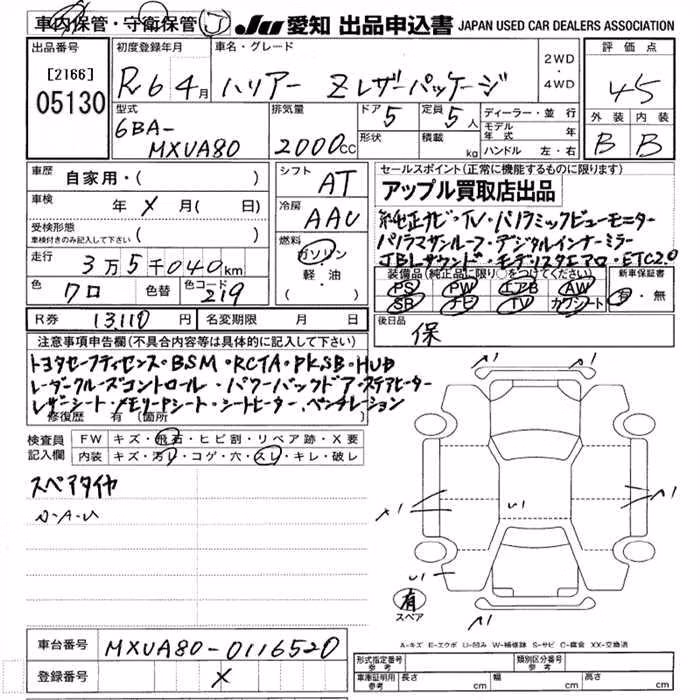 車内保管・守衛保管 J JU 愛知 出品申込書 JAPAN USED CAR DEALERS ASSOCIATION
出品番号 [2166] 05130
初度登録年月 R 6 4月
車名・グレード ハリアー Zレザーパッケージ
2WD・4WD
評価点 4.5
外装 B 内装 B
型式 6BA-MXUA80
排気量 2000cc
ドア 5 定員 5人
形状 積載 kg
ディーラー・並行
モデル年式 年
ハンドル 左・右
車歴 自家用・( )
車検 年 X 月( 日)
受検形態 車検付きのみ記入して下さい ( )
走行 3万5千040km
色 クロ 色替 色コード 219
シフト AT
冷房 AAC
燃料 ガソリン・軽・油
セールスポイント(正常に機能するものに限ります)
アップル買取店出品
純正ナビ・TV・パノラミックビューモニター
パノラマサンルーフ・デジタルインナーミラー
JBLサウンド・モデリスタエアロ・ETC2.0
装備品(純正品に限り○をつけてください) 新車保証書
PS PW エアB AW 有・無
SB ナビ TV カワシート
後日品 保
R券 13,110円 名変期限 月 日
注意事項申告欄(不具合内容等は具体的に記入して下さい)
トヨタセーフティセンス・BSM・RCTA・PKSB・HUD
レーダークルーズコントロール・パワーバックドア・ステアヒーター
レザーシート・メモリーPシート・シートヒーター、ベンチレーション
修復歴 有(箇所
検査員記入欄 FW キズ・飛石・ヒビ割・リペア跡・X要
内装 キズ・汚レ・コゲ・穴・スレ・キレ・破レ
スペアタイヤ
A1
A1
U1
A1
A1
U1
A1
有
スペア
A-キズ E-エクボ U-凹み W-補修跡 S-サビ C-腐食 XX-交換済
車台番号 MXUA80-0116520
登録番号 X
形式指定番号 参考 類別区分番号 参考
車庫証明用 参考 長さ cm 幅 cm 高さ cm